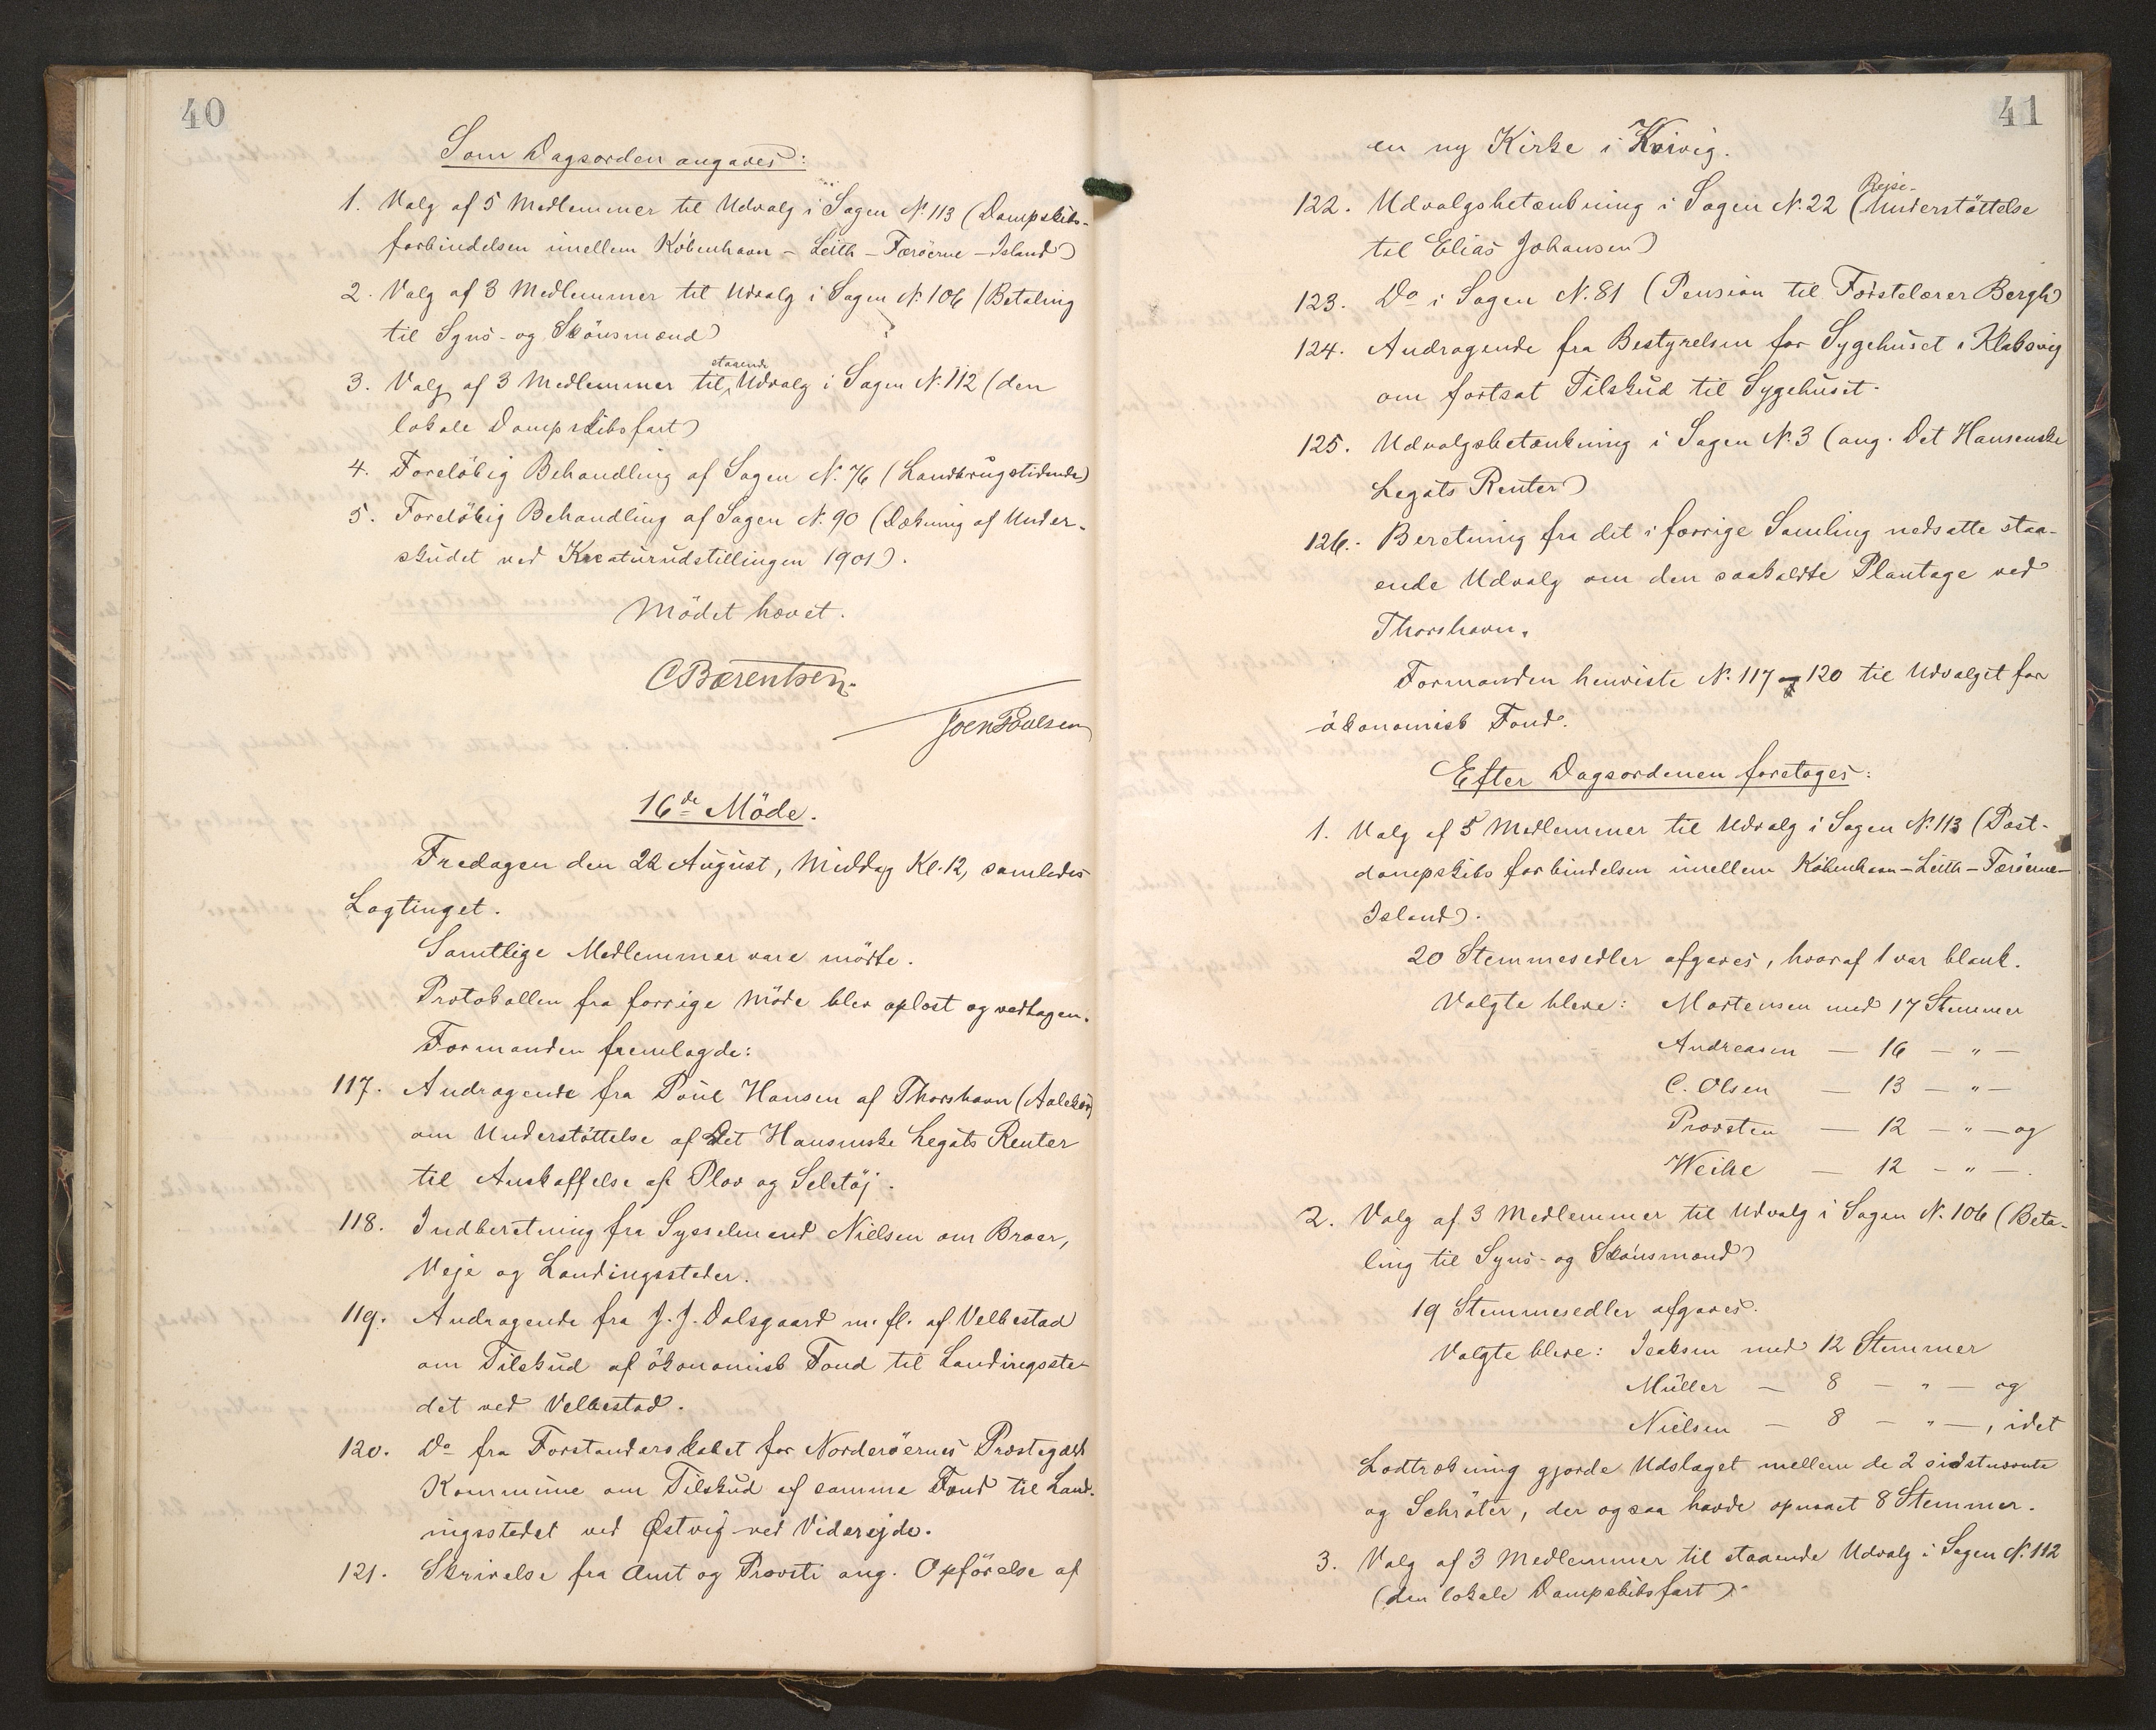 40
Som Dagsorden angaves:
1. Valg af 5 Medlemmer til Udvalg i Sagen N. 113 (Dampskibs-
forbindelsen imellem Köbenhavn - Leith - Færöerne - Island)
2. Valg af 3 Medlemmer til Udvalg i Sagen N. 106 (Betaling
til Syns- og Skönsmænd)
3. Valg af 3 Medlemmer til staaende Udvalg i Sagen N. 112 (den
lokale Dampskibsfart)
4. Forelöbig Behandling af Sagen N. 76 (Landbrugstidende)
5. Forelöbig Behandling af Sagen N. 90 (Dækning af Under-
skudet ved Kreaturudstillingen 1901).
Mödet hævet.
C Bærentsen.
Joen Poulsen
16de Möde.
Fredagen den 22 August, Middag Kl. 12, samledes
Lagtinget.
Samtlige Medlemmer vare mödte.
Protokollen fra forrige Möde blev oplæst og vedtagen.
Formanden fremlagde:
117. Andragende fra Poul Hansen af Thorshavn (Aalekær)
om Understöttelse af Det Hansenske Legats Renter
til Anskaffelse af Plov og Seletöj.
118. Indberetning fra Sysselmand Nielsen om Broer,
Veje og Landingssteder.
119. Andragende fra J. J. Dalsgaard m. fl. af Velbestad
om Tilskud af ökonomisk Fond til Landingsste-
det ved Velbestad.
120. Do fra Forstanderskabet for Norderöernes Præstegjælds
Kommune om Tilskud af samme Fond til Land-
ingsstedet ved Østvig ved Viderejde.
121. Skrivelse fra Amt og Provsti ang. Opförelse af
41
en ny Kirke i Kvivig.
122. Udvalgsbetænkning i Sagen N. 22 (Rejse-Understöttelse
til Elias Johansen)
123. Do i Sagen N. 81 (Pension til Förstelærer Bergh)
124. Andragende fra Bestyrelsen for Sygehuset i Klaksvig
om fortsat Tilskud til Sygehuset.
125. Udvalgsbetænkning i Sagen N. 3 (ang. Det Hansenske
Legats Renter)
126. Beretning fra det i forrige Samling nedsatte staa-
ende Udvalg om den saakaldte Plantage ved
Thorshavn.
Formanden henviste N. 117 og 120 til Udvalget for
ökonomisk Fond.
Efter Dagsordenen foretoges:
1. Valg af 5 Medlemmer til Udvalg i Sagen N. 113 (Post-
dampskibsforbindelsen imellem Köbenhavn - Leith - Færöerne -
Island).
20 Stemmesedler afgaves, hvoraf 1 var blank.
Valgte bleve: Mortensen med 17 Stemmer
Andreasen — 16 — " —
C. Olsen — 13 — " —
Provsten — 12 — " — og
Weihe — 12 — " —.
2. Valg af 3 Medlemmer til Udvalg i Sagen N. 106 (Beta-
ling til Syns- og Skönsmænd)
19 Stemmesedler afgaves.
Valgte bleve: Isaksen med 12 Stemmer
Müller — 8 — " — og
Nielsen — 8 — " —, idet
Lodtrækning gjorde Udslaget mellem de 2 sidstnævnte
og Schröter, der ogsaa havde opnaaet 8 Stemmer.
3. Valg af 3 Medlemmer til staaende Udvalg i Sagen N. 112
(den lokale Dampskibsfart).